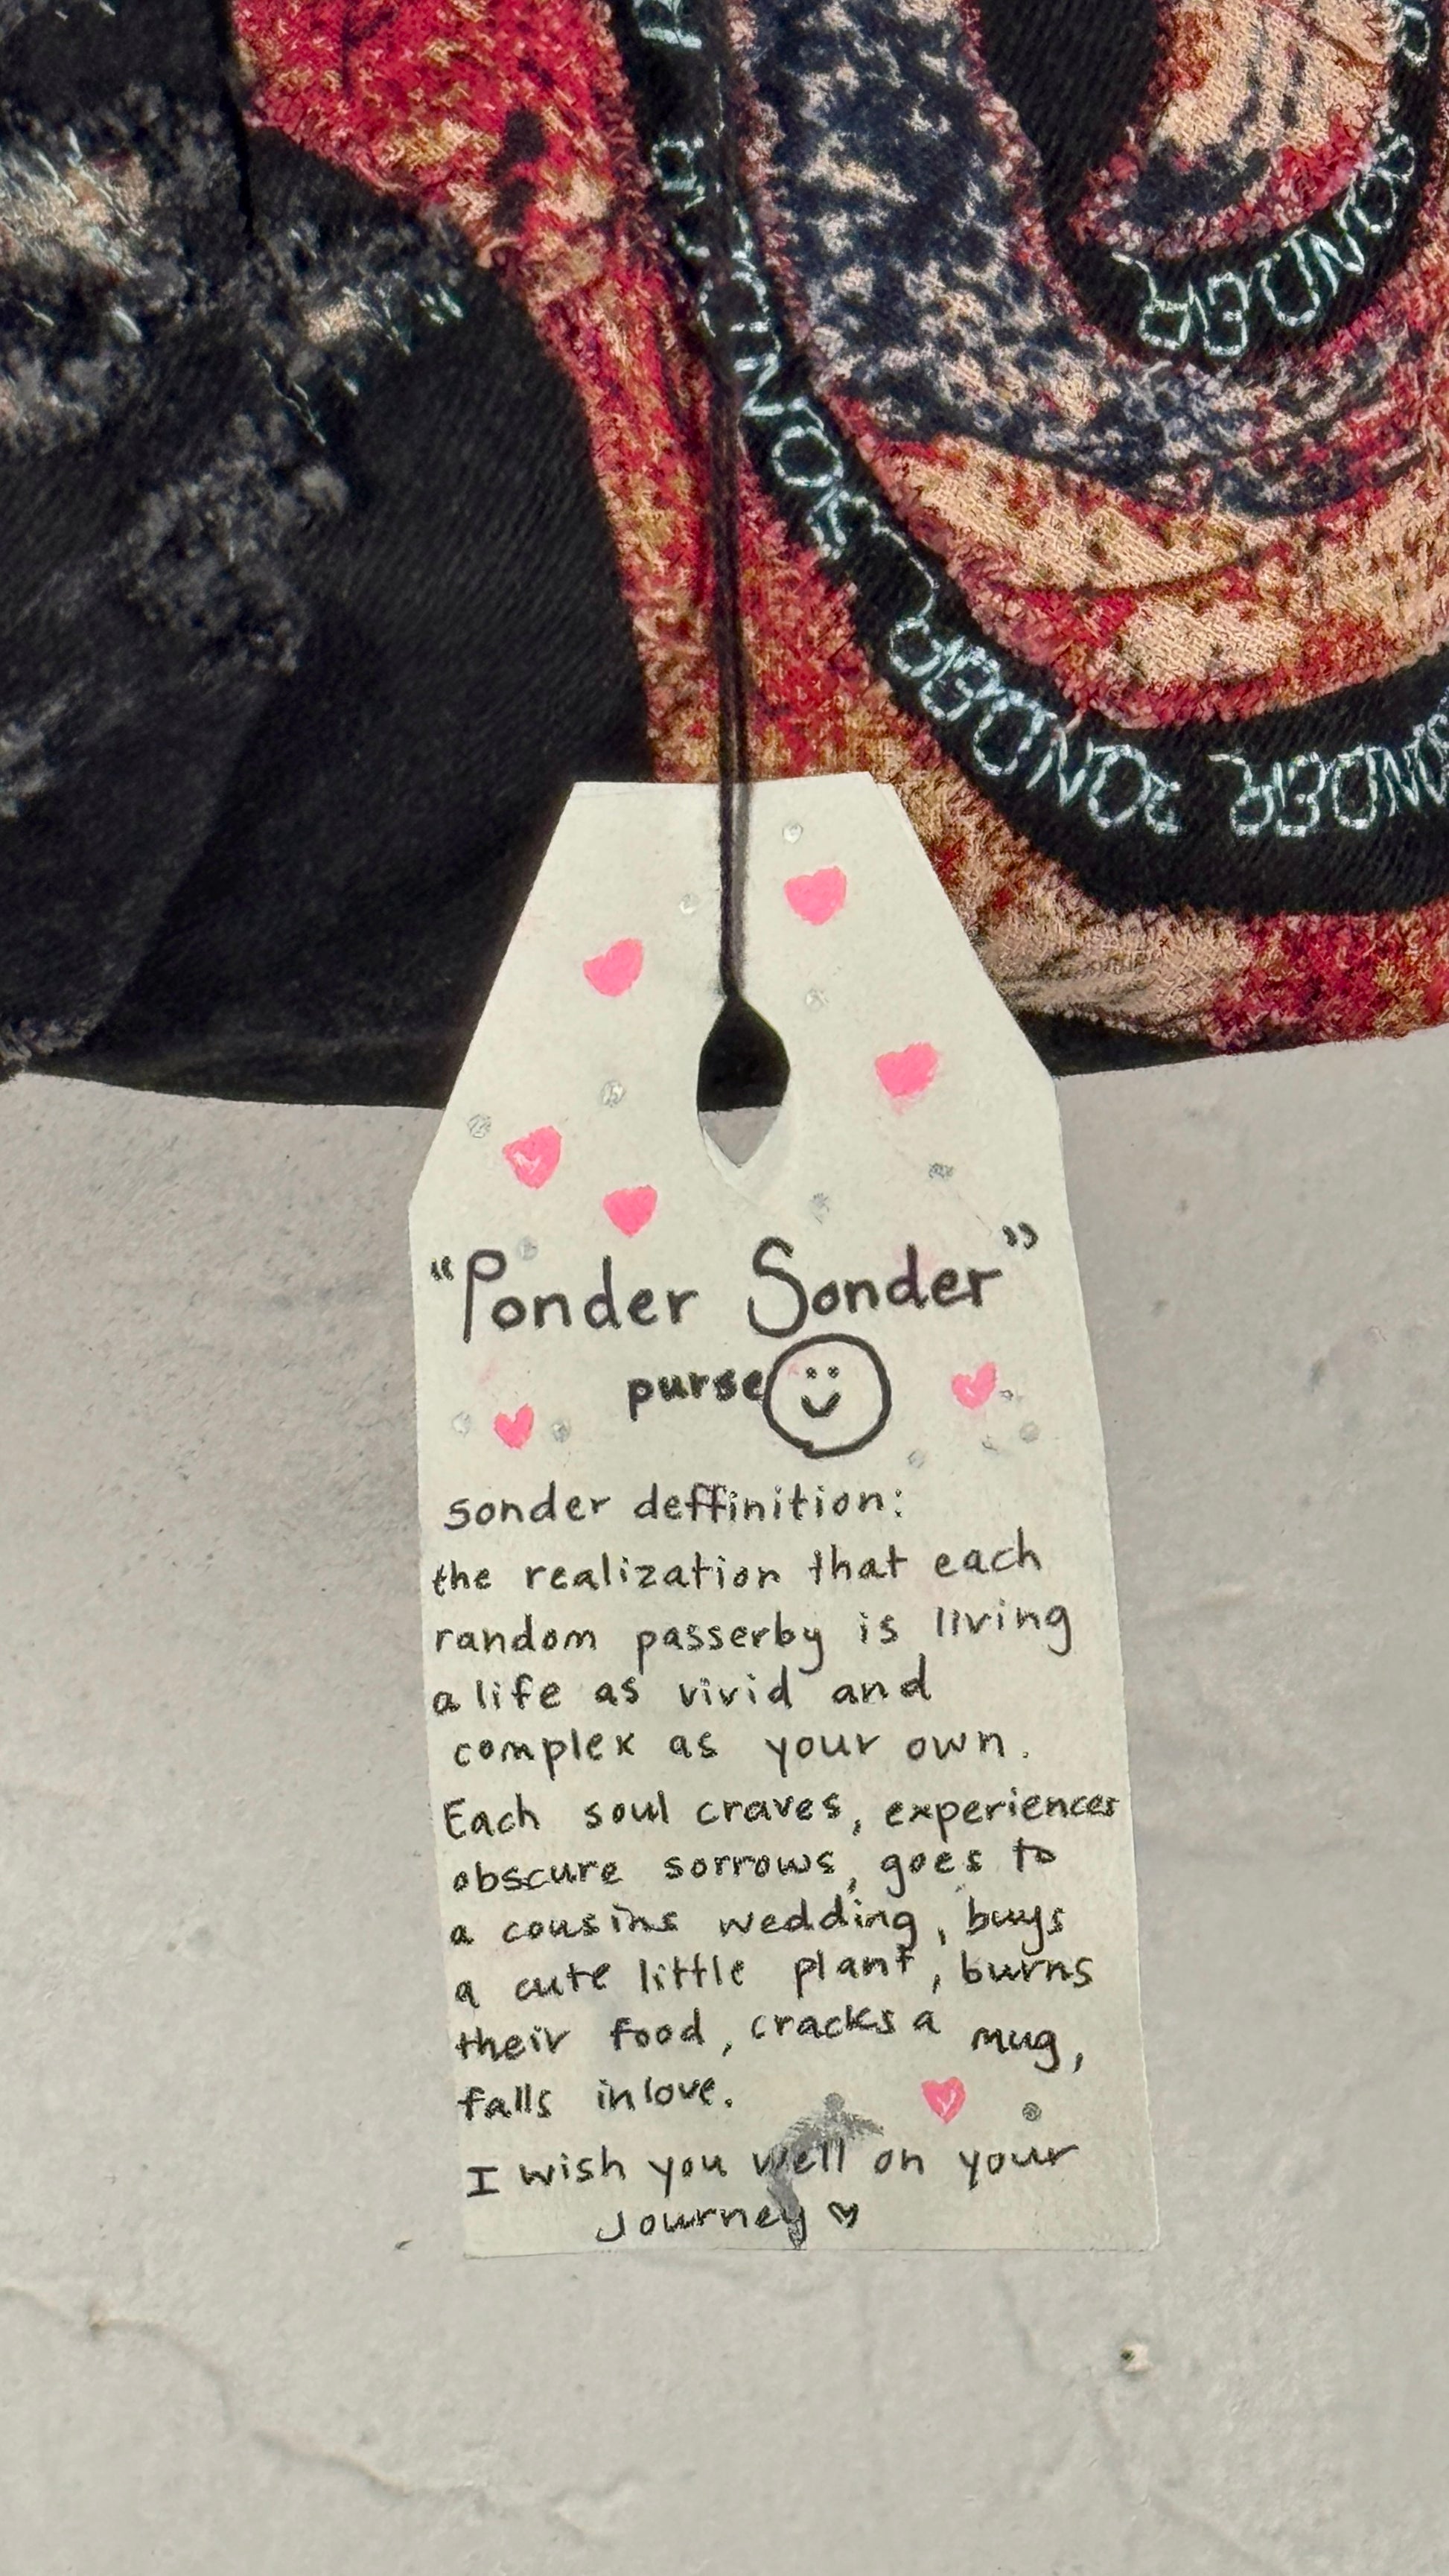 SONDER
SONDER SONDER SONDER
"Ponder Sonder"
purse
sonder deffinition:
the realization that each
random passerby is living
a life as vivid and
complex as your own.
Each soul craves, experiences
obscure sorrows, goes to
a cousins wedding, buys
a cute little plant, burns
their food, cracks a mug,
falls in love.
I wish you well on your
Journey